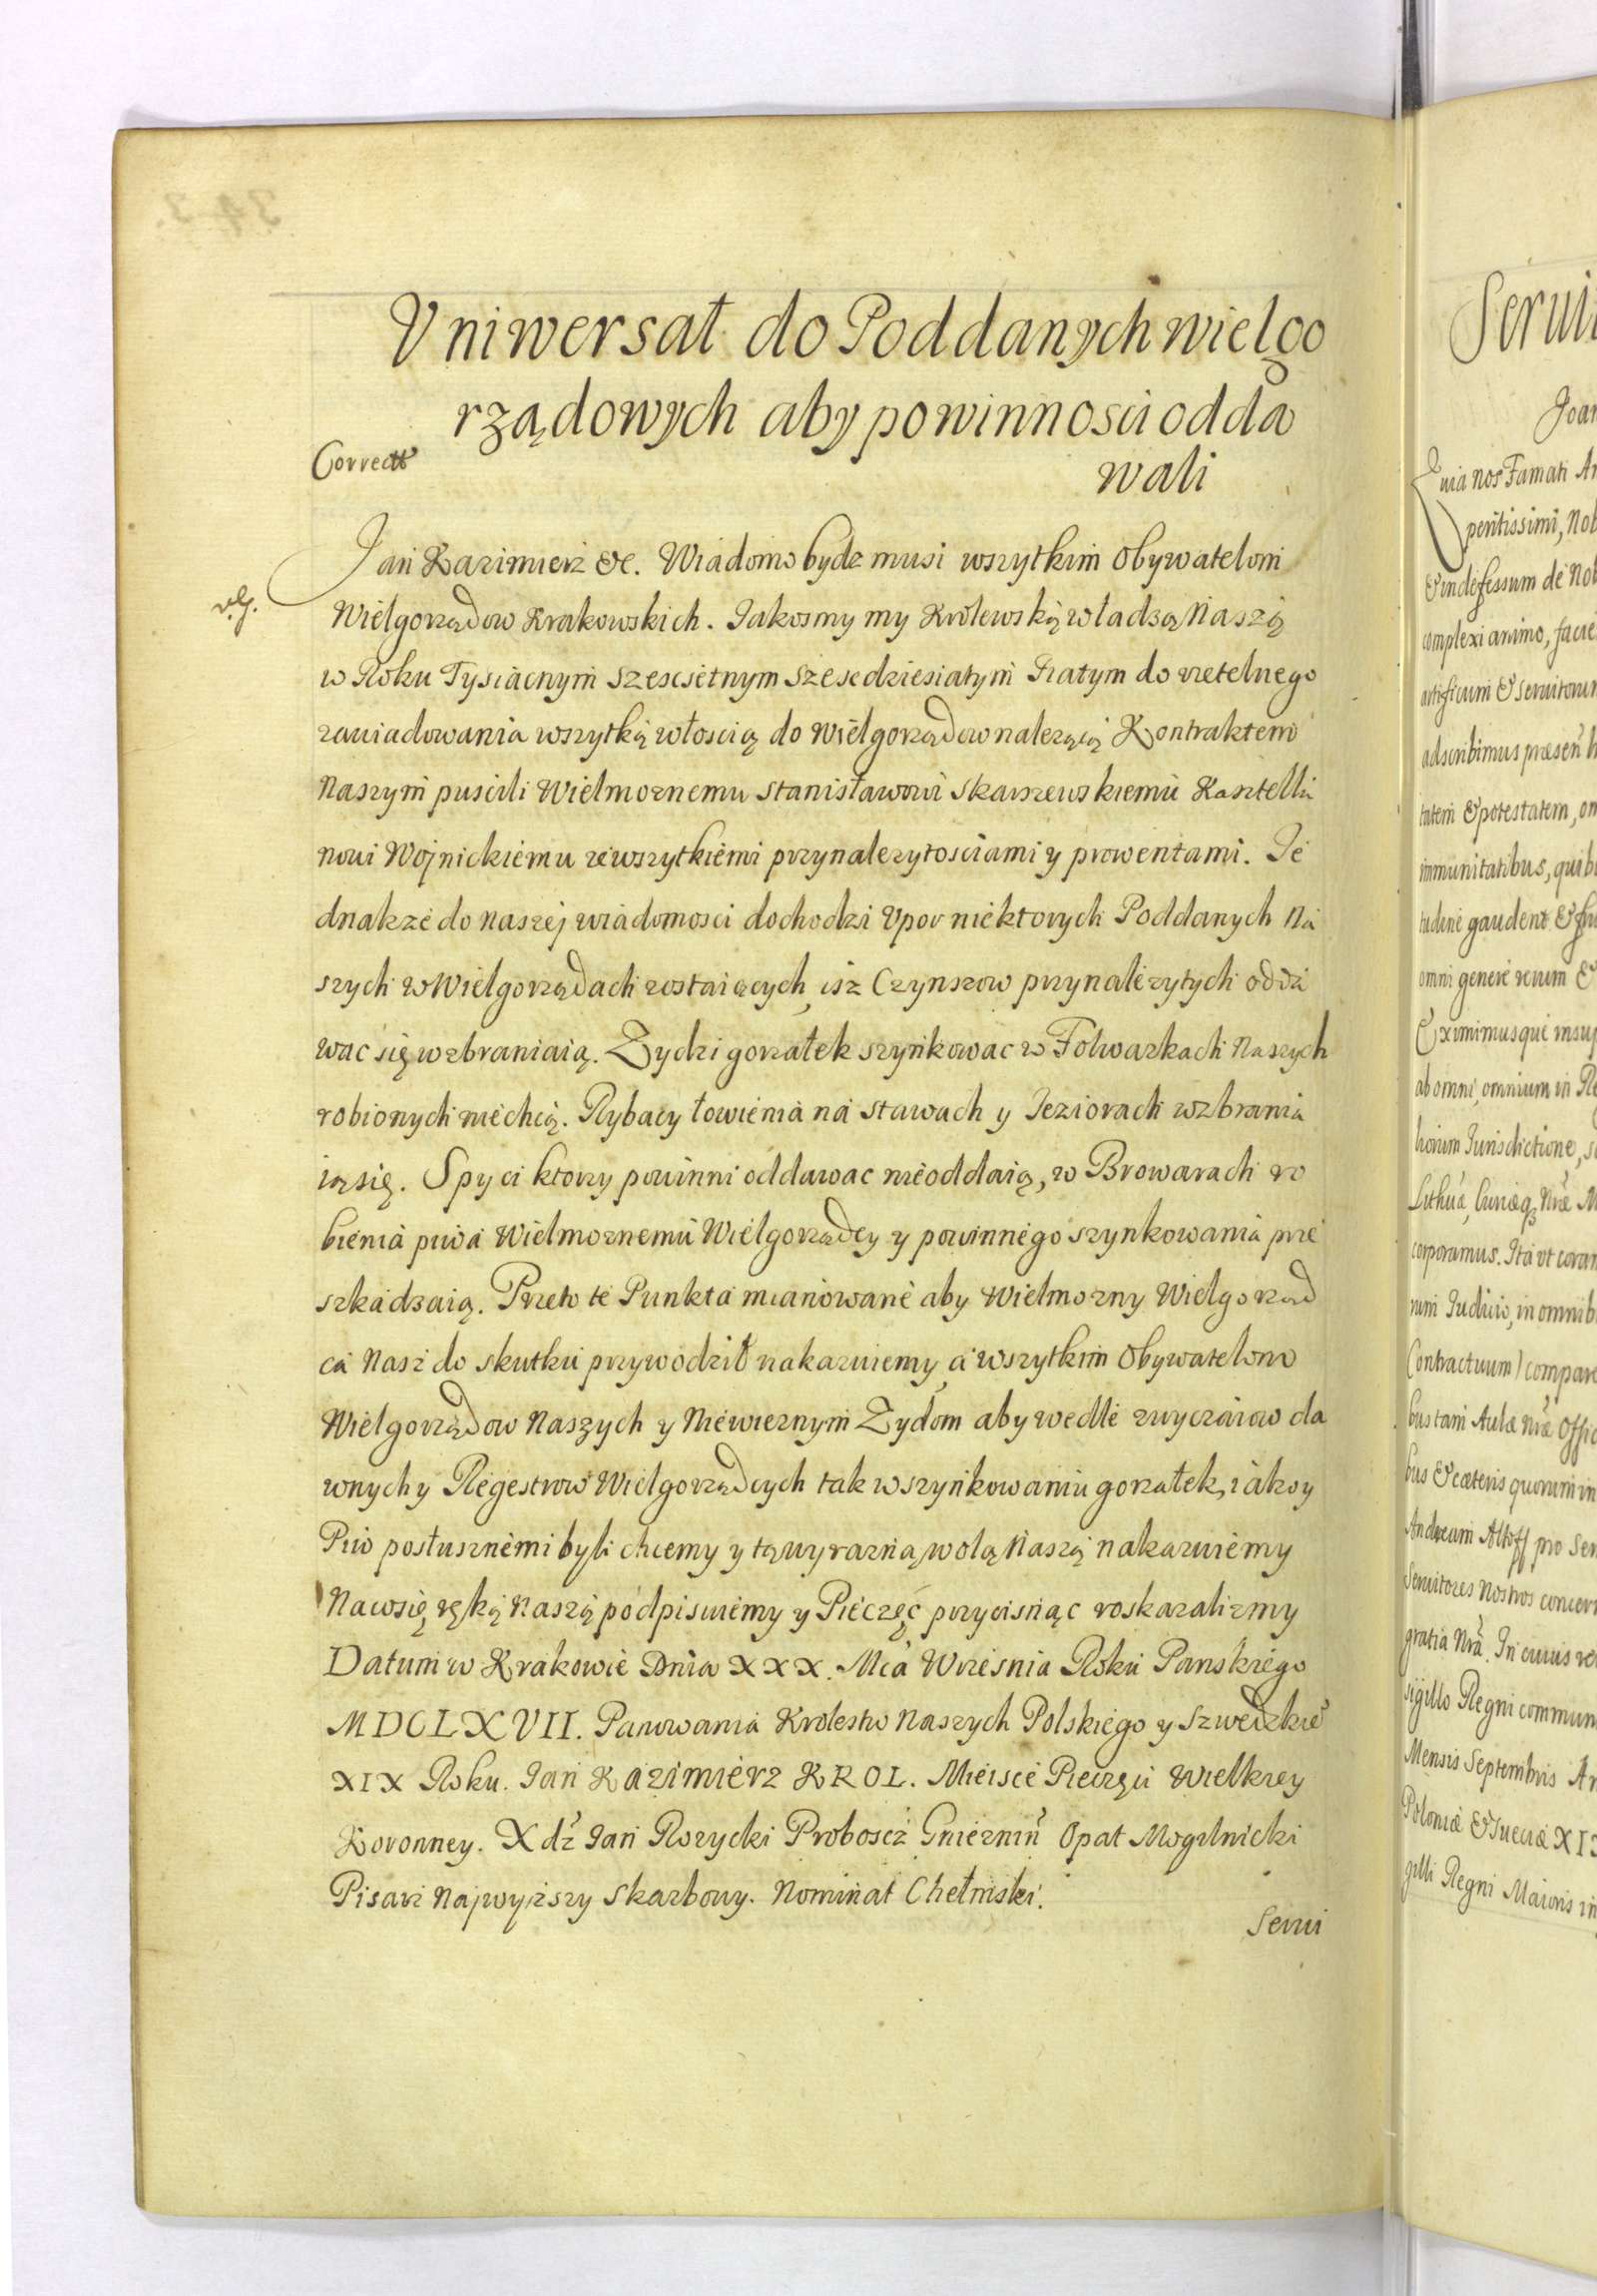 Vniwersał do Poddanych wielgo
rządowych aby powinnosci odda
wali
Correct
Jan Kazimierz &c. Wiadomo bydz musi wszytkim Obywatelom
Wielgorządow Krakowskich. Jakosmy my Krolewską władzą Naszą
w Roku Tysiącnym szescsetnym szescdziesiatym Piatym do rzetelnego
zawiadowania wszytką włoscią do Wielgorządow nalezącą Kontraktem
Naszym puscili Wielmoznemu Stanisławowi Skarszewskiemu Kasztella
nowi Wojnickiemu ze wszytkiemi przynalezytosciami y prowentami. Je
dnakze do naszej wiadomosci dochodzi Vpor niektorych Poddanych Na
szych w Wielgorządach zostaiących, isz Czynszow przynalezytych odda
wac się wzbraniaią. Zydzi gorzałek szynkowac w Folwarkach Naszych
robionych niechcą. Rybacy łowienia na stawach y Jeziorach wzbrania
ią się. Spy ci ktorzy powinni oddawac nieoddaią, w Browarach ro
bienia piwa Wielmoznemu Wielgorządcy y powinnego szynkowania prze
szkadzaią. Przeto te Punkta mianowane aby Wielmozny Wielgorząd
ca Nasz do skutku przywodził nakazuiemy, a wszytkim Obywatelom
Wielgorządow Naszych y Niewiernym Zydom aby wedle zwyczaiow da
wnych y Regestrow Wielgorządcych tak w szynkowaniu gorzałek, iako y
Piw posłusznemi byli chcemy y tą wyrazną wolą Naszą nakazuiemy
Na co się ręką Naszą podpisuiemy y Pieczęć przycisnąc roskazalizmy
Datum w Krakowie Dnia XXX. Mca Wrzesnia Roku Panskiego
MDCLXVII. Panowania Krolestw Naszych Polskiego y Szwedzkie
XIX Roku. Jan Kazimierz KROL. Mieisce Pieczęci Wielkiey
Koronney. Xdz Jan Rozycki Proboscz Gniezniń Opat Mogilnicki
Pisarz Najwyzszy Skarbowy. Nominat Chełmski.
Serui
Serui
Joan
uia nos Famati
peritissimi, Nob
& indefessum de Nob
complexi animo, facie
artificum & seruitorum
adscribimus præsen
tatem & potestatem, om
immunitatibus, quib
tudine gaudent &
omni genere rerum &
Eximimusque insup
ab omni, omnium in Re
horum Jurisdictione, s
corporamus. Ita vt coram
rum Judicio, in omnib
Contractuum) compare
bus tam Aulæ Nræ Offic
bus & cæteris quorum in
Andream Altoff pro Ser
Seruitores Nostros concern
gratia Nra. In cuius re
sigillo Regni commun
Mensis Septembris An
Poloniæ & Sueciæ XIX
gilli Regni Maioris in